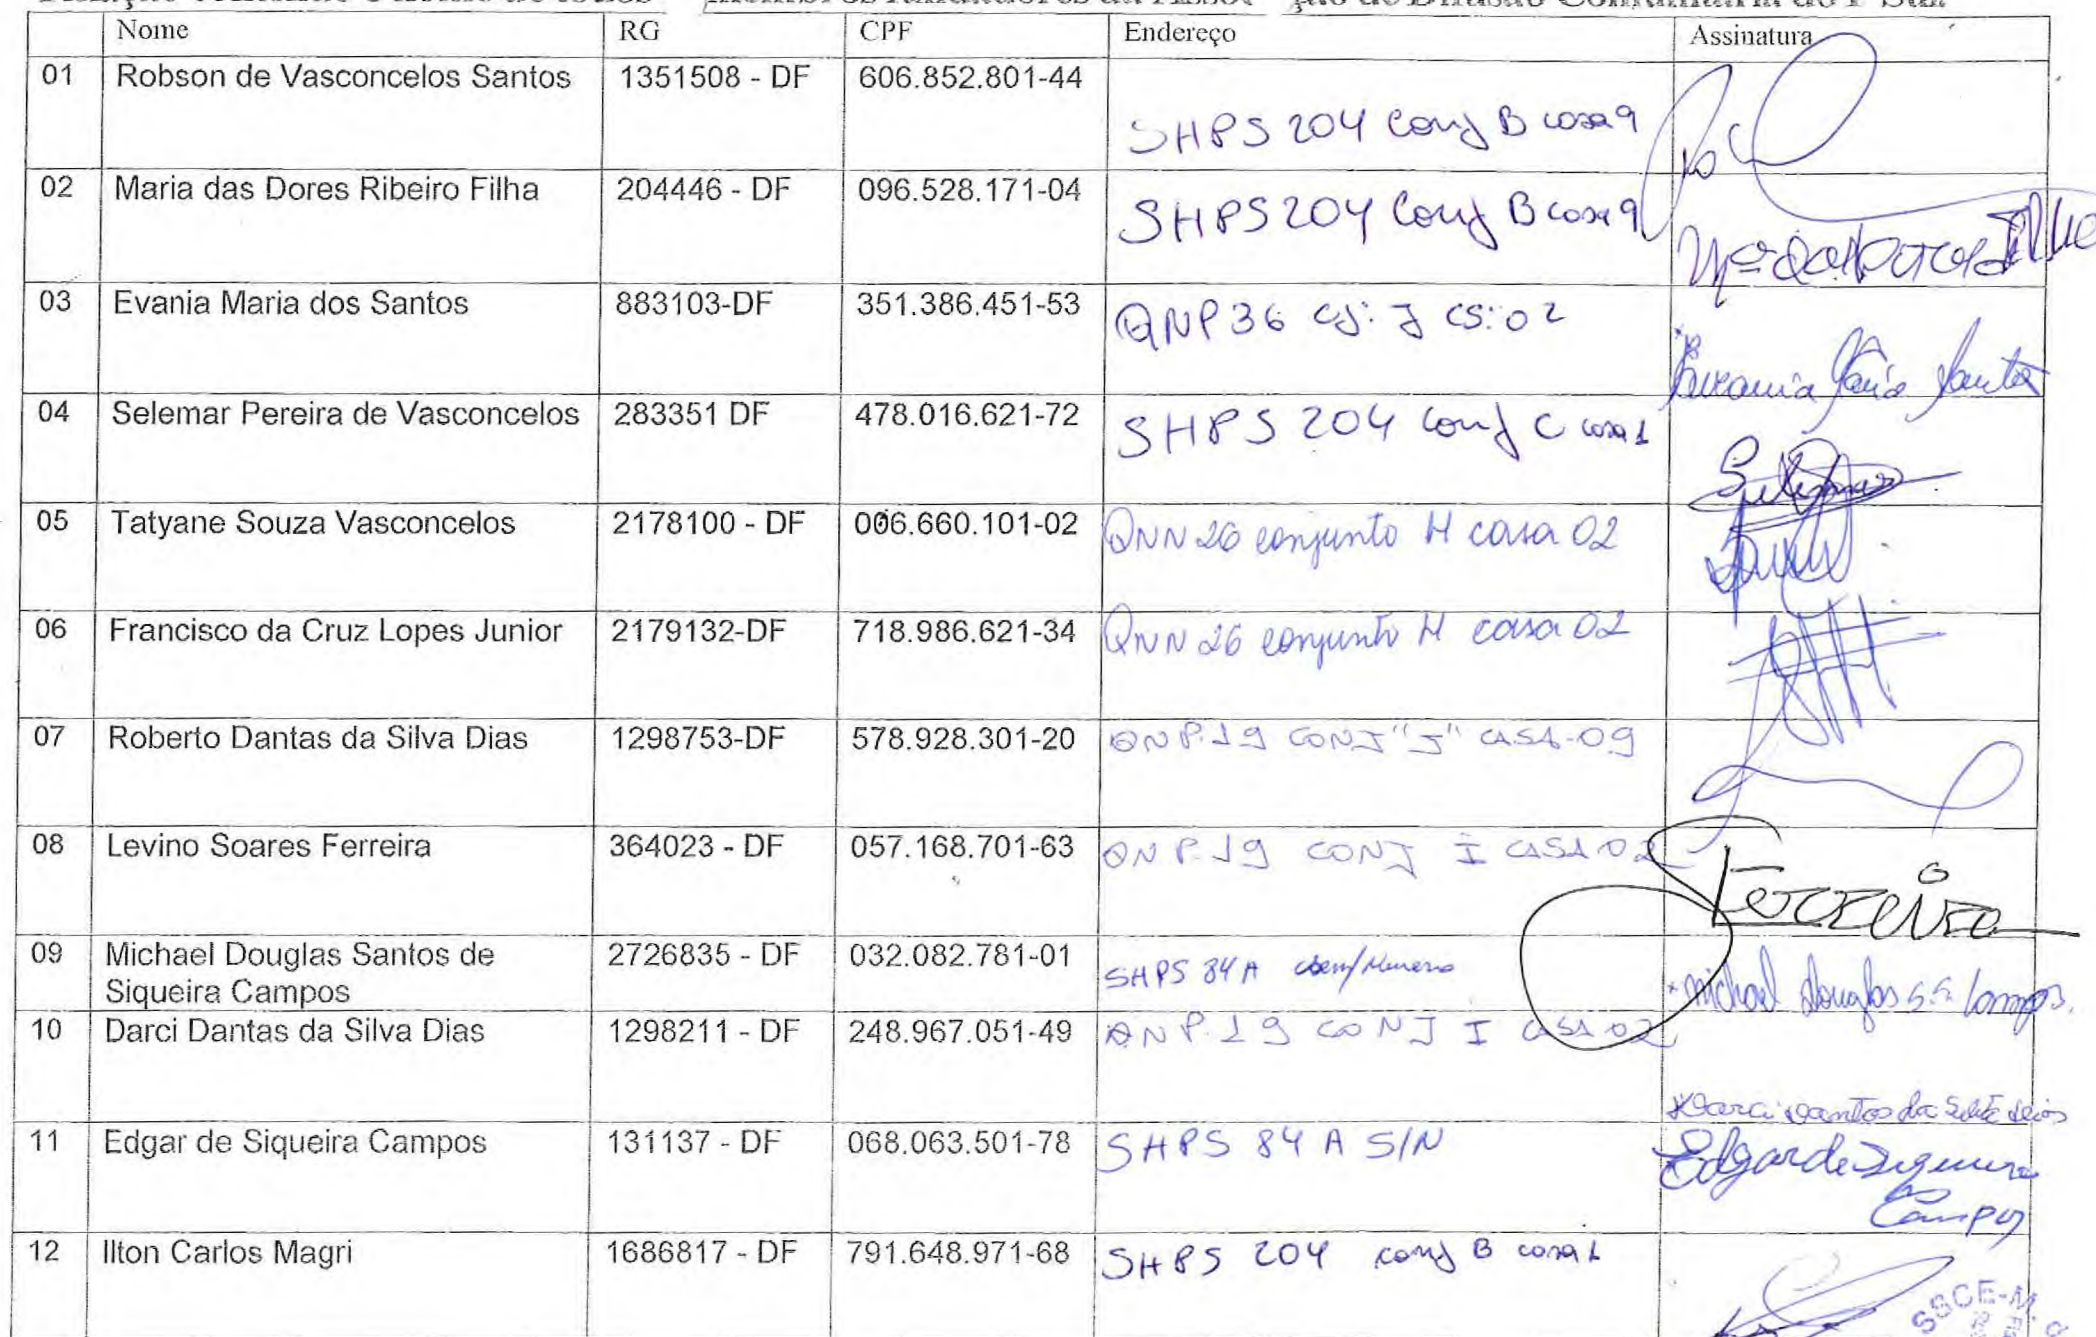 membros fundadores da Difusão Comunitária do P Sul
Nome RG CPF Endereço Assinatura
01 Robson de Vasconcelos Santos 1351508 - DF 606.852.801-44
SHPS 204 Conj B casa 9
02 Maria das Dores Ribeiro Filha 204446 - DF 096.528.171-04
SHPS 204 Conj B casa 9
03 Evania Maria dos Santos 883103-DF 351.386.451-53
QNP 36 CJ: J CS: 02
04 Selemar Pereira de Vasconcelos 283351 DF 478.016.621-72
SHPS 204 Conj C casa 1
Selemar
05 Tatyane Souza Vasconcelos 2178100 - DF 006.660.101-02 QNN 26 conjunto H casa 02
06 Francisco da Cruz Lopes Junior 2179132-DF 718.986.621-34 QNN 26 conjunto H casa 02
07 Roberto Dantas da Silva Dias 1298753-DF 578.928.301-20 QNP.19 CONJ "J" CASA-09
08 Levino Soares Ferreira 364023 - DF 057.168.701-63 QNP.19 CONJ I CASA 02
Ferreira
09 Michael Douglas Santos de 2726835 - DF 032.082.781-01
Siqueira Campos SHPS 84 A Michael Douglas S.S. Campos.
10 Darci Dantas da Silva Dias 1298211 - DF 248.967.051-49 QNP.19 CONJ I CASA 02
Darci Dantas da Silva Dias
11 Edgar de Siqueira Campos 131137 - DF 068.063.501-78 SHPS 84 A S/N Edgar de Siqueira
Campos
12 Ilton Carlos Magri 1686817 - DF 791.648.971-68 SHPS 204 conj B casa 1
SSCE-M